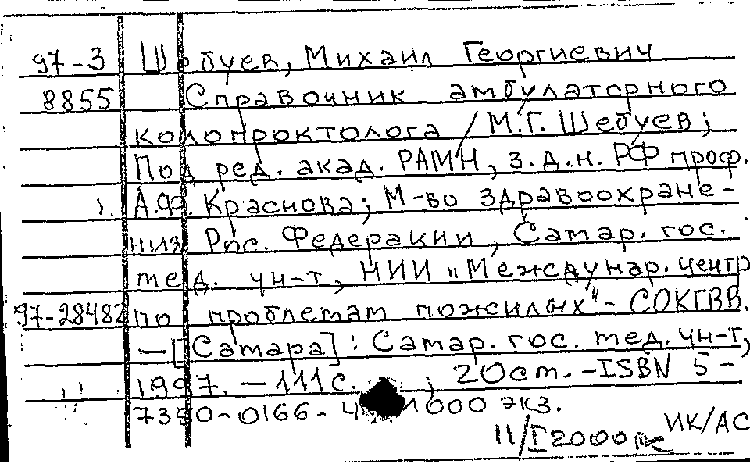 97-3 Шебуев, Михаил Георгиевич
8855 Справочник амбулаторного
колопроктолога / М.Г. Шебуев;
Под ред. акад. РАМН, з.д.н. РФ проф.
А.Ф. Краснова; М-во здравоохране-
ния Рос. Федерации, Самар. гос.
мед. ун-т, НИИ "Междунар. центр
97-28482 по проблемам пожилых" - СОКГВВ.
— [Самара] : Самар. гос. мед. ун-т,
1997. — 111 с. ; 20 cm. - ISBN 5-
7350-0166- 1000 экз.
11/I 2000 ИК/АС